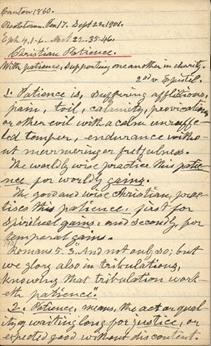 Canton 1860.
Eph. 4,1-6. Matt 22-35-46.
Christian Patience.
With patience, supporting one another in charity.
2nd v. Epistle.
1. Patience is, suffering afflictions,
pain, toil, calamity, provocation
or other evil with a calm unruff-
led temper, endurance withou-
t murmuring or fretfulness.
The worldly wise practice this patie-
nce for worldly gains.
The good and wise Christian, prac-
tises this patience. first for
spiritual gains. and secondly, for
temporal gain.
Romans 5.3. And not only so; but
we glory also in tribulations,
knowing that tribulation work-
eth patience.
2. Patience, means, the act or qual-
ity of waiting long for justice, or
expected good without discontent.